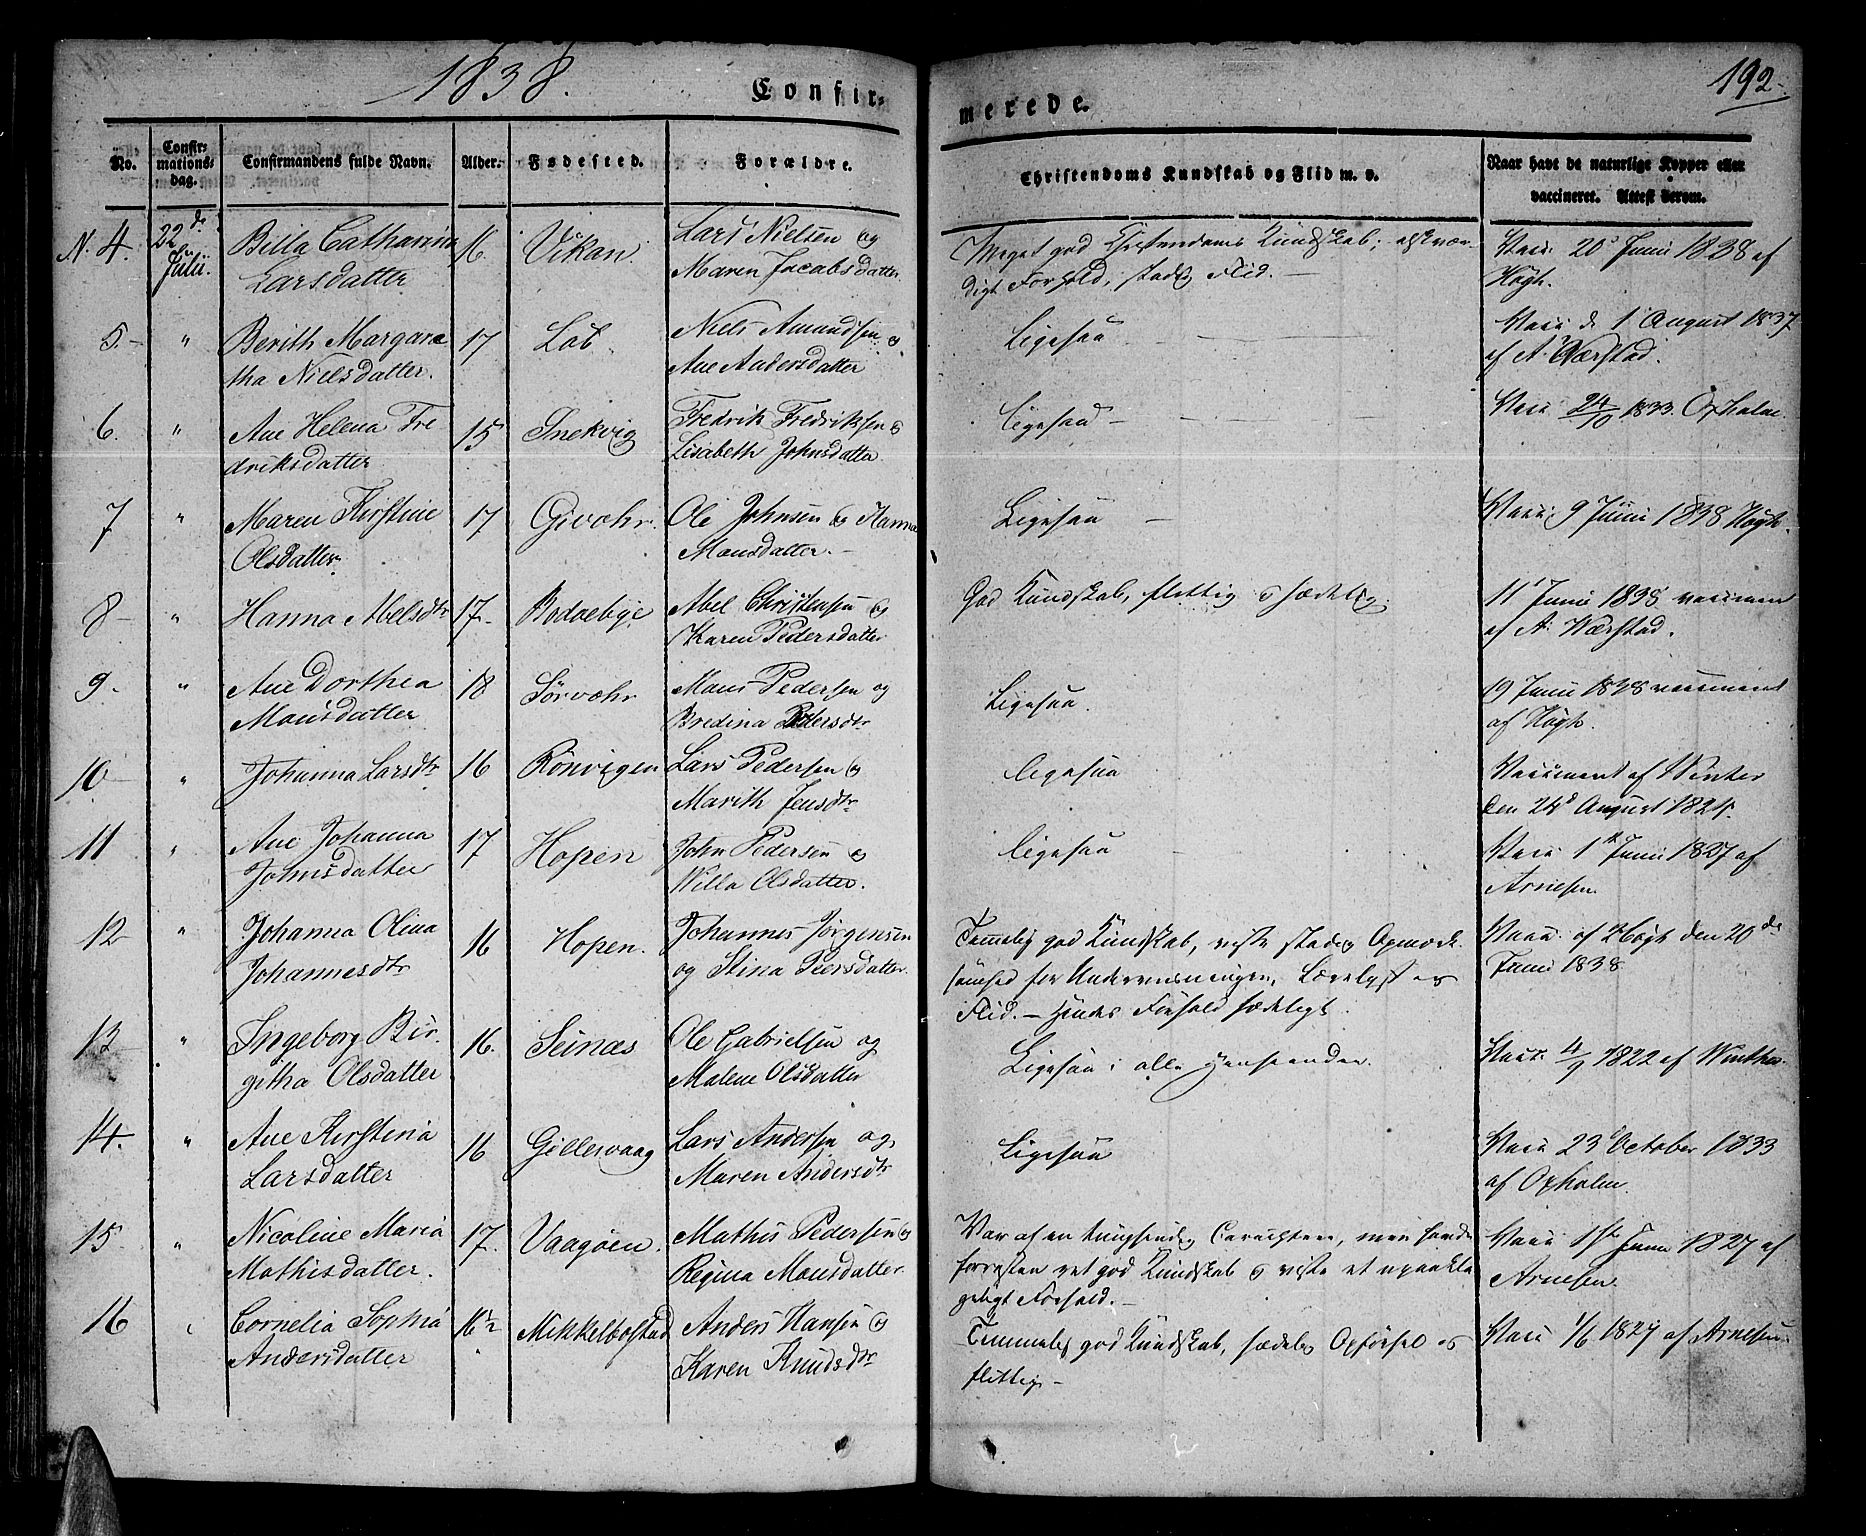 1838.
Confir-
merede.
192.
No.
Confir-
mations-
dag.
Confirmandens fulde Navn.
Alder.
Fødested.
Forældre.
Christendoms Kundskab og Flid m. v.
Naar havt de naturlige Kopper eller
vaccineret. Attest derom.
N. 4. 22de Julii Billa Catharina Larsdatter 16 Vikan Lars Nielsen og Maren Jacobsdatter
Meget god Christendoms Kundskab; elskvær-
digt Forhold, stadig Flid. —
Vacc. 20 Juni 1838 af
Høgh.
5. " Berith Margare
tha Nielsdatter. 17 Løb Niels Amundsen og
Ane Andersdatter
Ligesaa
Vacc. d. 1 August 1837
af A. Værstad.
6. " Ane Helena Fre
driksdatter 15 Snekvig Fredrik Fredriksen og
Lisabeth Johnsdatter
Ligesaa
Vacc. 24/9 1833. Oxholm
7 " Maren Kirstine
Olsdatter 17 Givæhr. Ole Johnsen og Hanna
Monsdatter. —
Ligesaa —
Vacc. 9 Juni 1838 Høgh.
8 " Hanna Abelsdtr 17. Bodøebye Abel Christensen og
Karen Pedersdatter
God Kundskab, flittig og sædelig.
11 Juni 1838 vaccineret
af A. Wærstad.
9. " Ane Dorthea
Monsdatter 18 Sørvæhr Mons Pedersen og
Bredina Pedersdtr
Ligesaa.
19 Juni 1838 vaccineret
af Høgh.
10 " Johanna Larsdtr 16 Rønvigen Lars Pedersen og
Marith Jensdtr
ligesaa
Vaccineret af Winter
den 24d August 1824.
11 " Ane Johanna
Johnsdatter 17 Hopen John Pedersen og
Willa Olsdatter.
ligesaa
Vacc. 1ste Juni 1827 af
Arnesen.
12 " Johanna Olina
Johannesdtr 16 Hopen. Johannes Jørgensen
og Stina Peersdatter
Temmelig god Kundskab, viste stadig Opmærk-
somhed for Underviisningen, Lærelyst og
Flid. — Hendes Forhold sædeligt.
Vacc. af Høgh den 20de
Juni 1838
13 " Ingeborg Bir-
githa Olsdatter 16. Seinæs Ole Gabrielsen og
Malene Olsdatter
Ligesaa i alle Henseender.
Vacc. 4/9 1822 af Winther
14. " Ane Kirstina
Larsdatter 16 Gillesvaag Lars Andersen og
Maren Andersdtr
Ligesaa
Vacc 23 October 1833
af Oxholm.
15 " Nicoline Maria
Mathisdatter. 17. Vaagøen. Mathis Pedersen og
Regina Monsdatter
Var af en tungsindig Caracteer, men havde
forresten ret god Kundskab og viste et upaakla
geligt Forhold. —
Vacc 1ste Juni 1827 af
Arnesen
16 " Cornelia Sophia
Andersdatter 16½ Mikkelbostad Anders Hansen og
Karen Knudsdtr
Temmelig god Kundskab, sædelig Opførsel og
flittig —
Vacc 1/6 1827 af Arnesen.